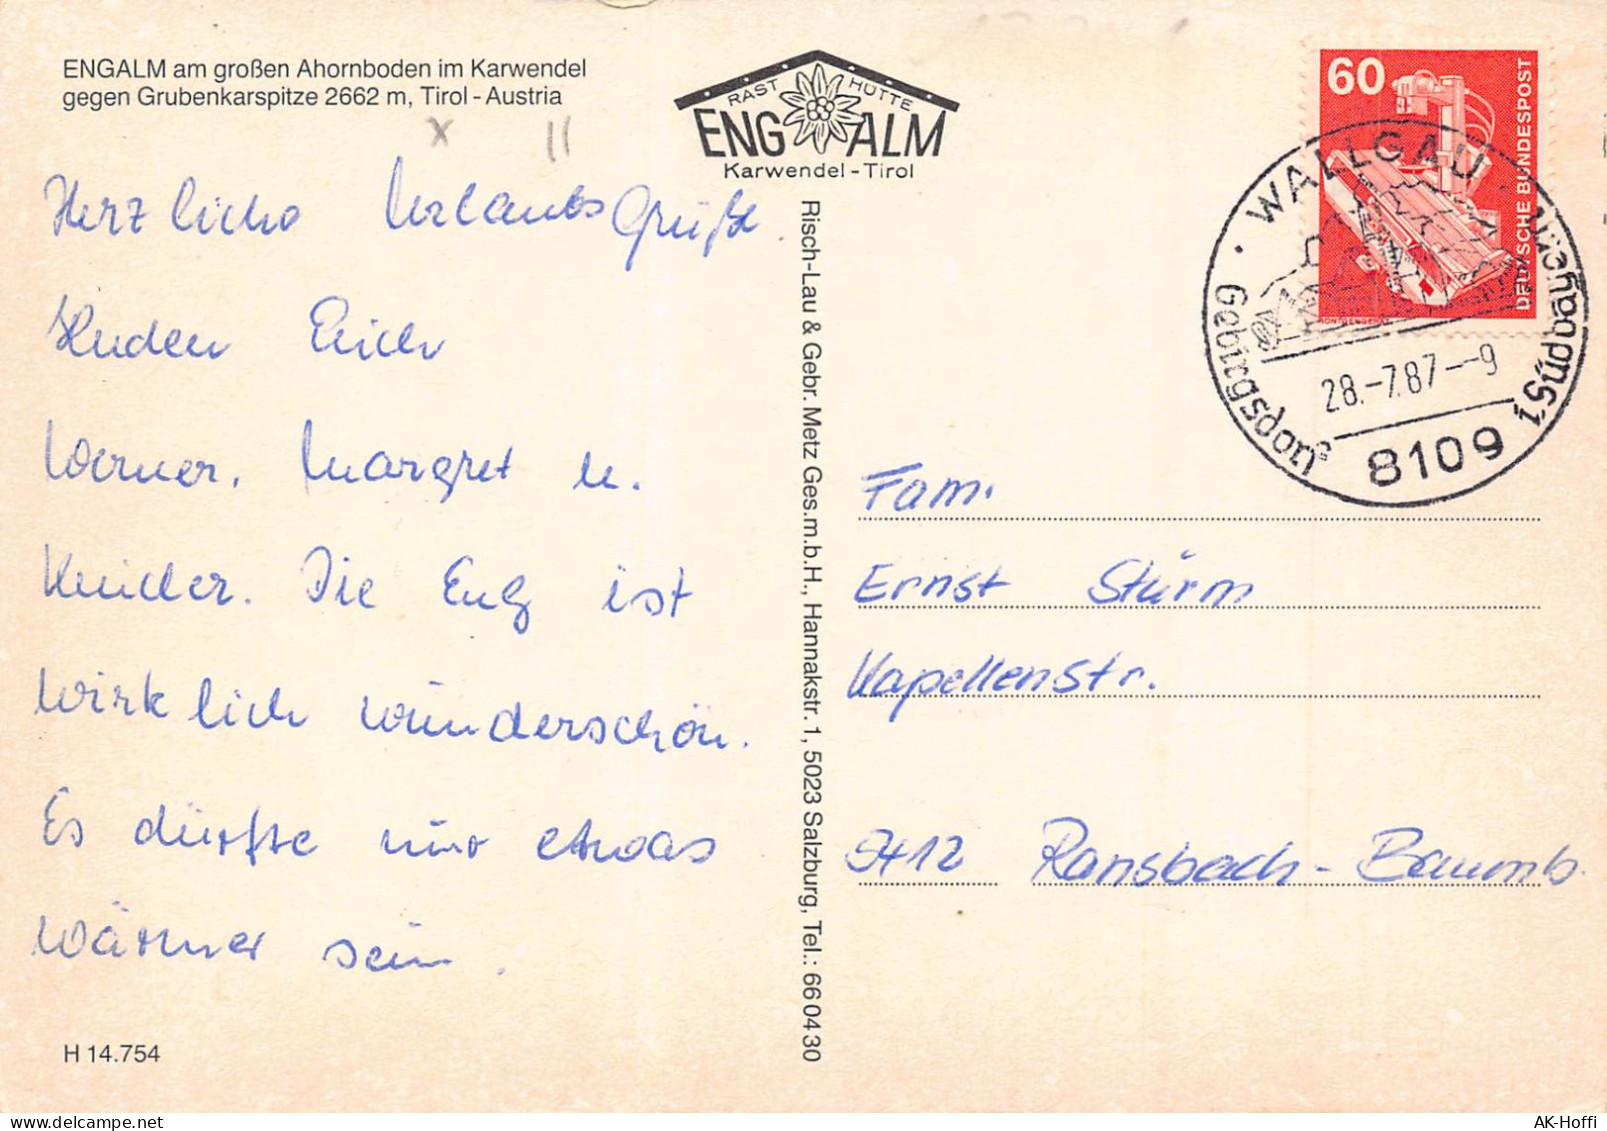 ENGALM am großen Ahornboden im Karwendel
gegen Grubenkarspitze 2662 m, Tirol - Austria
RAST HÜTTE
ENG ALM
Karwendel - Tirol
Herzliche Urlaubsgrüße
senden Euch
Werner, Margret u.
Kinder. Die Eng ist
wirklich wunderschön.
Es dürfte nur etwas
wärmer sein.
H 14.754
Risch-Lau & Gebr. Metz Ges.m.b.H., Hannakstr. 1, 5023 Salzburg, Tel.: 66 04 30
60
DEUTSCHE BUNDESPOST
WALLGAU
Gebirgsdorf
28.-7.87--9
8109
Fam.
Ernst Sturm
Kapellenstr.
5412 Ransbach-Baumb.
AK-Hoffi